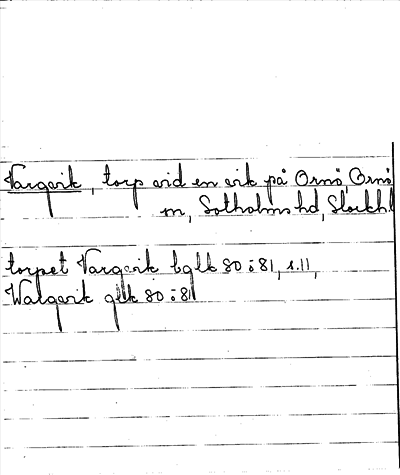 Vargvik, torp vid en vik på Ornö, Ornö
m, Sotholms hd, Stockh.l
torpet Vargvik bglk 80:81, s.11,
Walgvik glk 80:81